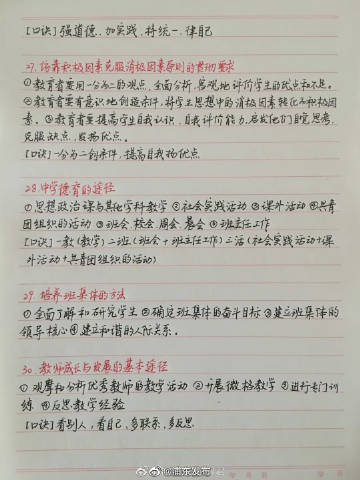 [口诀] 强道德、加实践、持统一、律自己
27. 依靠积极因素克服消极因素原则的贯彻要求
①教育者要用一分为二的观点,全面分析,客观地评价学生的优点和不足。
②教育者要有意识地创造条件,将学生思想中的消极因素转化为积极因
素。③教育者要提高学生自我认识、自我评价能力,启发他们自觉思考,
克服缺点,发扬优点。
[口诀] 一分为二创条件,提高自我扬优点
28. 中学德育的途径
①思想政治课与其他学科教学 ②社会实践活动 ③课外活动 ④共青
团组织的活动 ⑤班会 校会 周会 晨会 ⑥班主任工作
[口诀] 一教(教学)二班(班会+班主任工作)三活(社会实践活动+课
外活动+共青团组织的活动)
29. 培养班集体的方法
①全面了解和研究学生 ②确定班集体的奋斗目标 ③建立班集体的
领导核心 ④建立和谐的人际关系。
30. 教师成长与发展的基本途径
①观摩和分析优秀教师的教学活动 ②开展微格教学 ③进行专门训
练 ④反思教学经验
[口诀] 看别人,看自己,多联系,多反思
@浦东发布